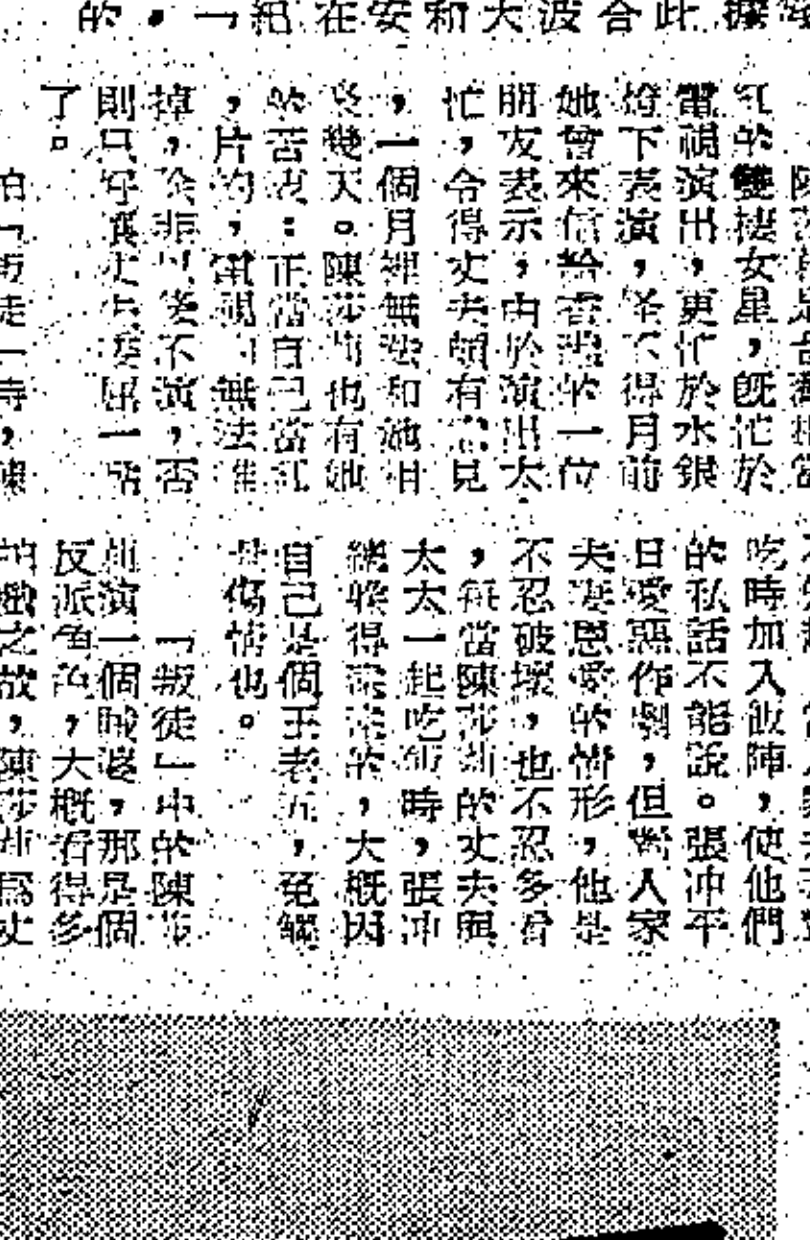 的，「紀在安和大波合此據
陳莎莉是台灣
紅的雙棲女星，既忙於
電視演出，更忙於水銀
燈下表演，怪不得月前
她曾來信給香港的一位
朋友表示，由於演出太
忙，令得丈夫頗有意見
，一個月裡無法和她相
聚幾天。陳莎莉也有她
的苦衷：正當自己當紅
，片約，電視，無法推
掉，除非以後不演，否
則只好讓丈夫委屈一點
了。
拍「叛徒」時，陳
吃時加入飯陣，使他們
的私話不能說。張冲平
日愛惡作劇，但對人家
夫妻恩愛的情形，他是
不忍破壞，也不忍多看
，每當陳莎莉的丈夫與
太太一起吃飯時，張冲
總躲得遠遠的，大概因
自己是個王老五，免觸
景傷情也。
「叛徒」中的陳莎
莉演一個賊婆，那是個
反派角色，大概看得多
拍戲之故，陳莎莉爲丈